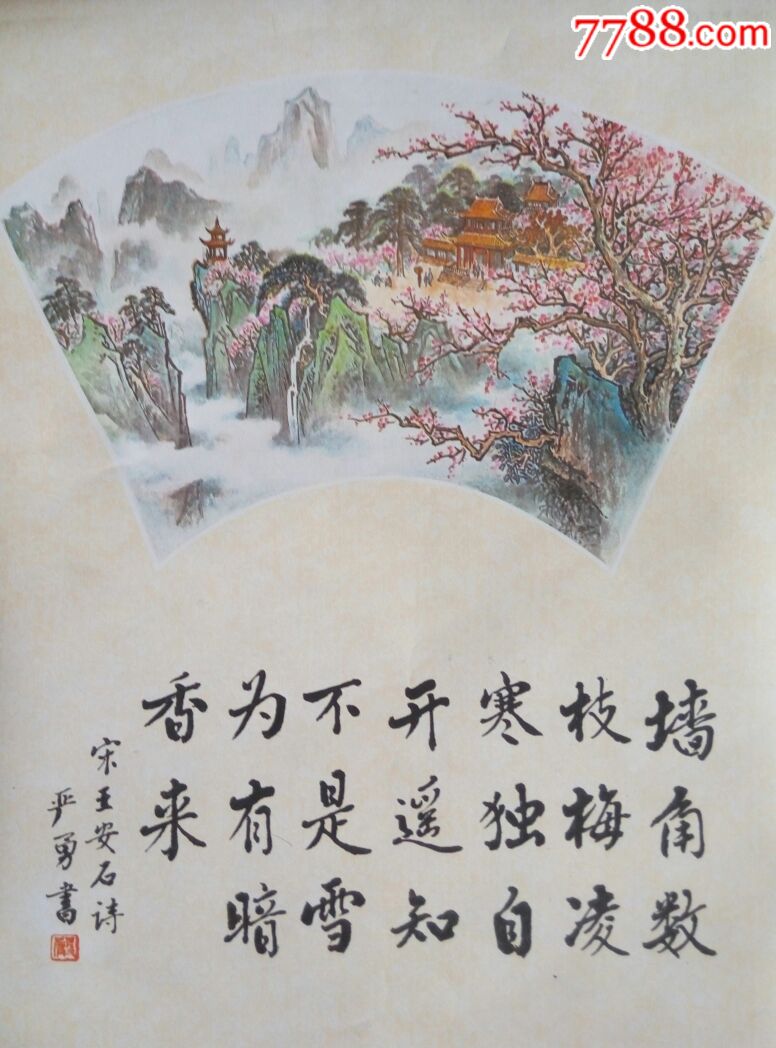 7788.com
墙角数
枝梅凌
寒独自
开遥知
不是雪
为有暗
香来
宋王安石诗
严勇书